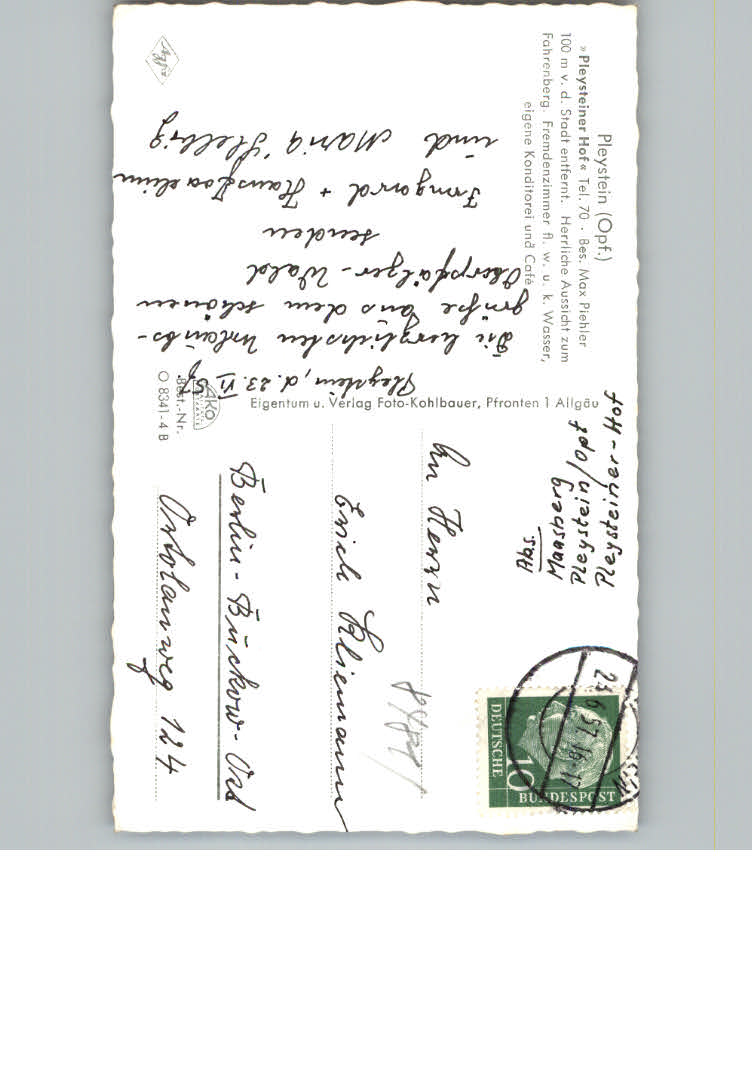 Pleystein (Opf.)
»Pleysteiner Hof« Tel. 70 · Bes. Max Piehler
100 m v. d. Stadt entfernt. Herrliche Aussicht zum
Fahrenberg. Fremdenzimmer fl. w. u. k. Wasser,
eigene Konditorei und Café
Agfa
Pleystein, d. 23. VI. 57.
Die herzlichsten Urlaubs-
grüße aus dem schönen
Oberpfälzer-Wald
senden
Irmgard + Hansjoachim
und Maria Helbig
Eigentum u. Verlag Foto-Kohlbauer, Pfronten 1 Allgäu
AKO
Best.-Nr.
O 8341-4 B
Abs.
Pleystein/Opf
Pleysteiner-Hof
An Herrn
Erich Kliemann
Berlin-Buckow-Ost
Ortolanweg 124
DEUTSCHE
BUNDESPOST
10
23.6.57.16-17